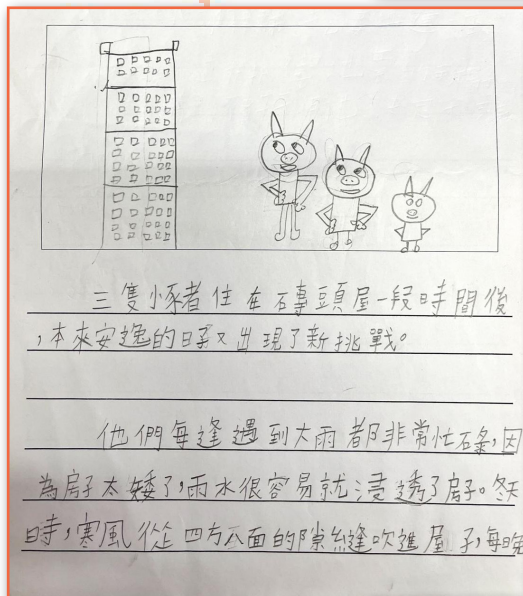 三隻小豬住在磚頭屋一段時間後
,本來安逸的日子又出現了新挑戰。
他們每逢遇到大雨都非常忙碌,因
為房子太矮了,雨水很容易就浸透了房子。冬天
時,寒風從四方八面的隙縫吹進屋子,每晚